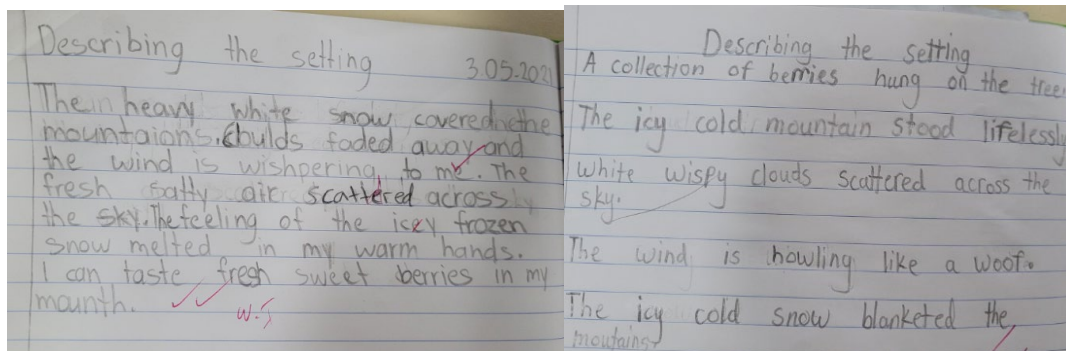 Describing the setting
3.05.2021
The heavy white snow covered the
mountaions. Coulds faded away and
the wind is wishpering to me. The
fresh salty air scattered across
the sky. The feeling of the icey frozen
snow melted in my warm hands.
I can taste fresh sweet berries in my
mounth.
W.S
Describing the setting
A collection of berries hung on the tree
The icy cold mountain stood lifelessly
White wispy clouds scattered across the
sky.
The wind is howling like a woof.
The icy cold snow blanketed the
moutains